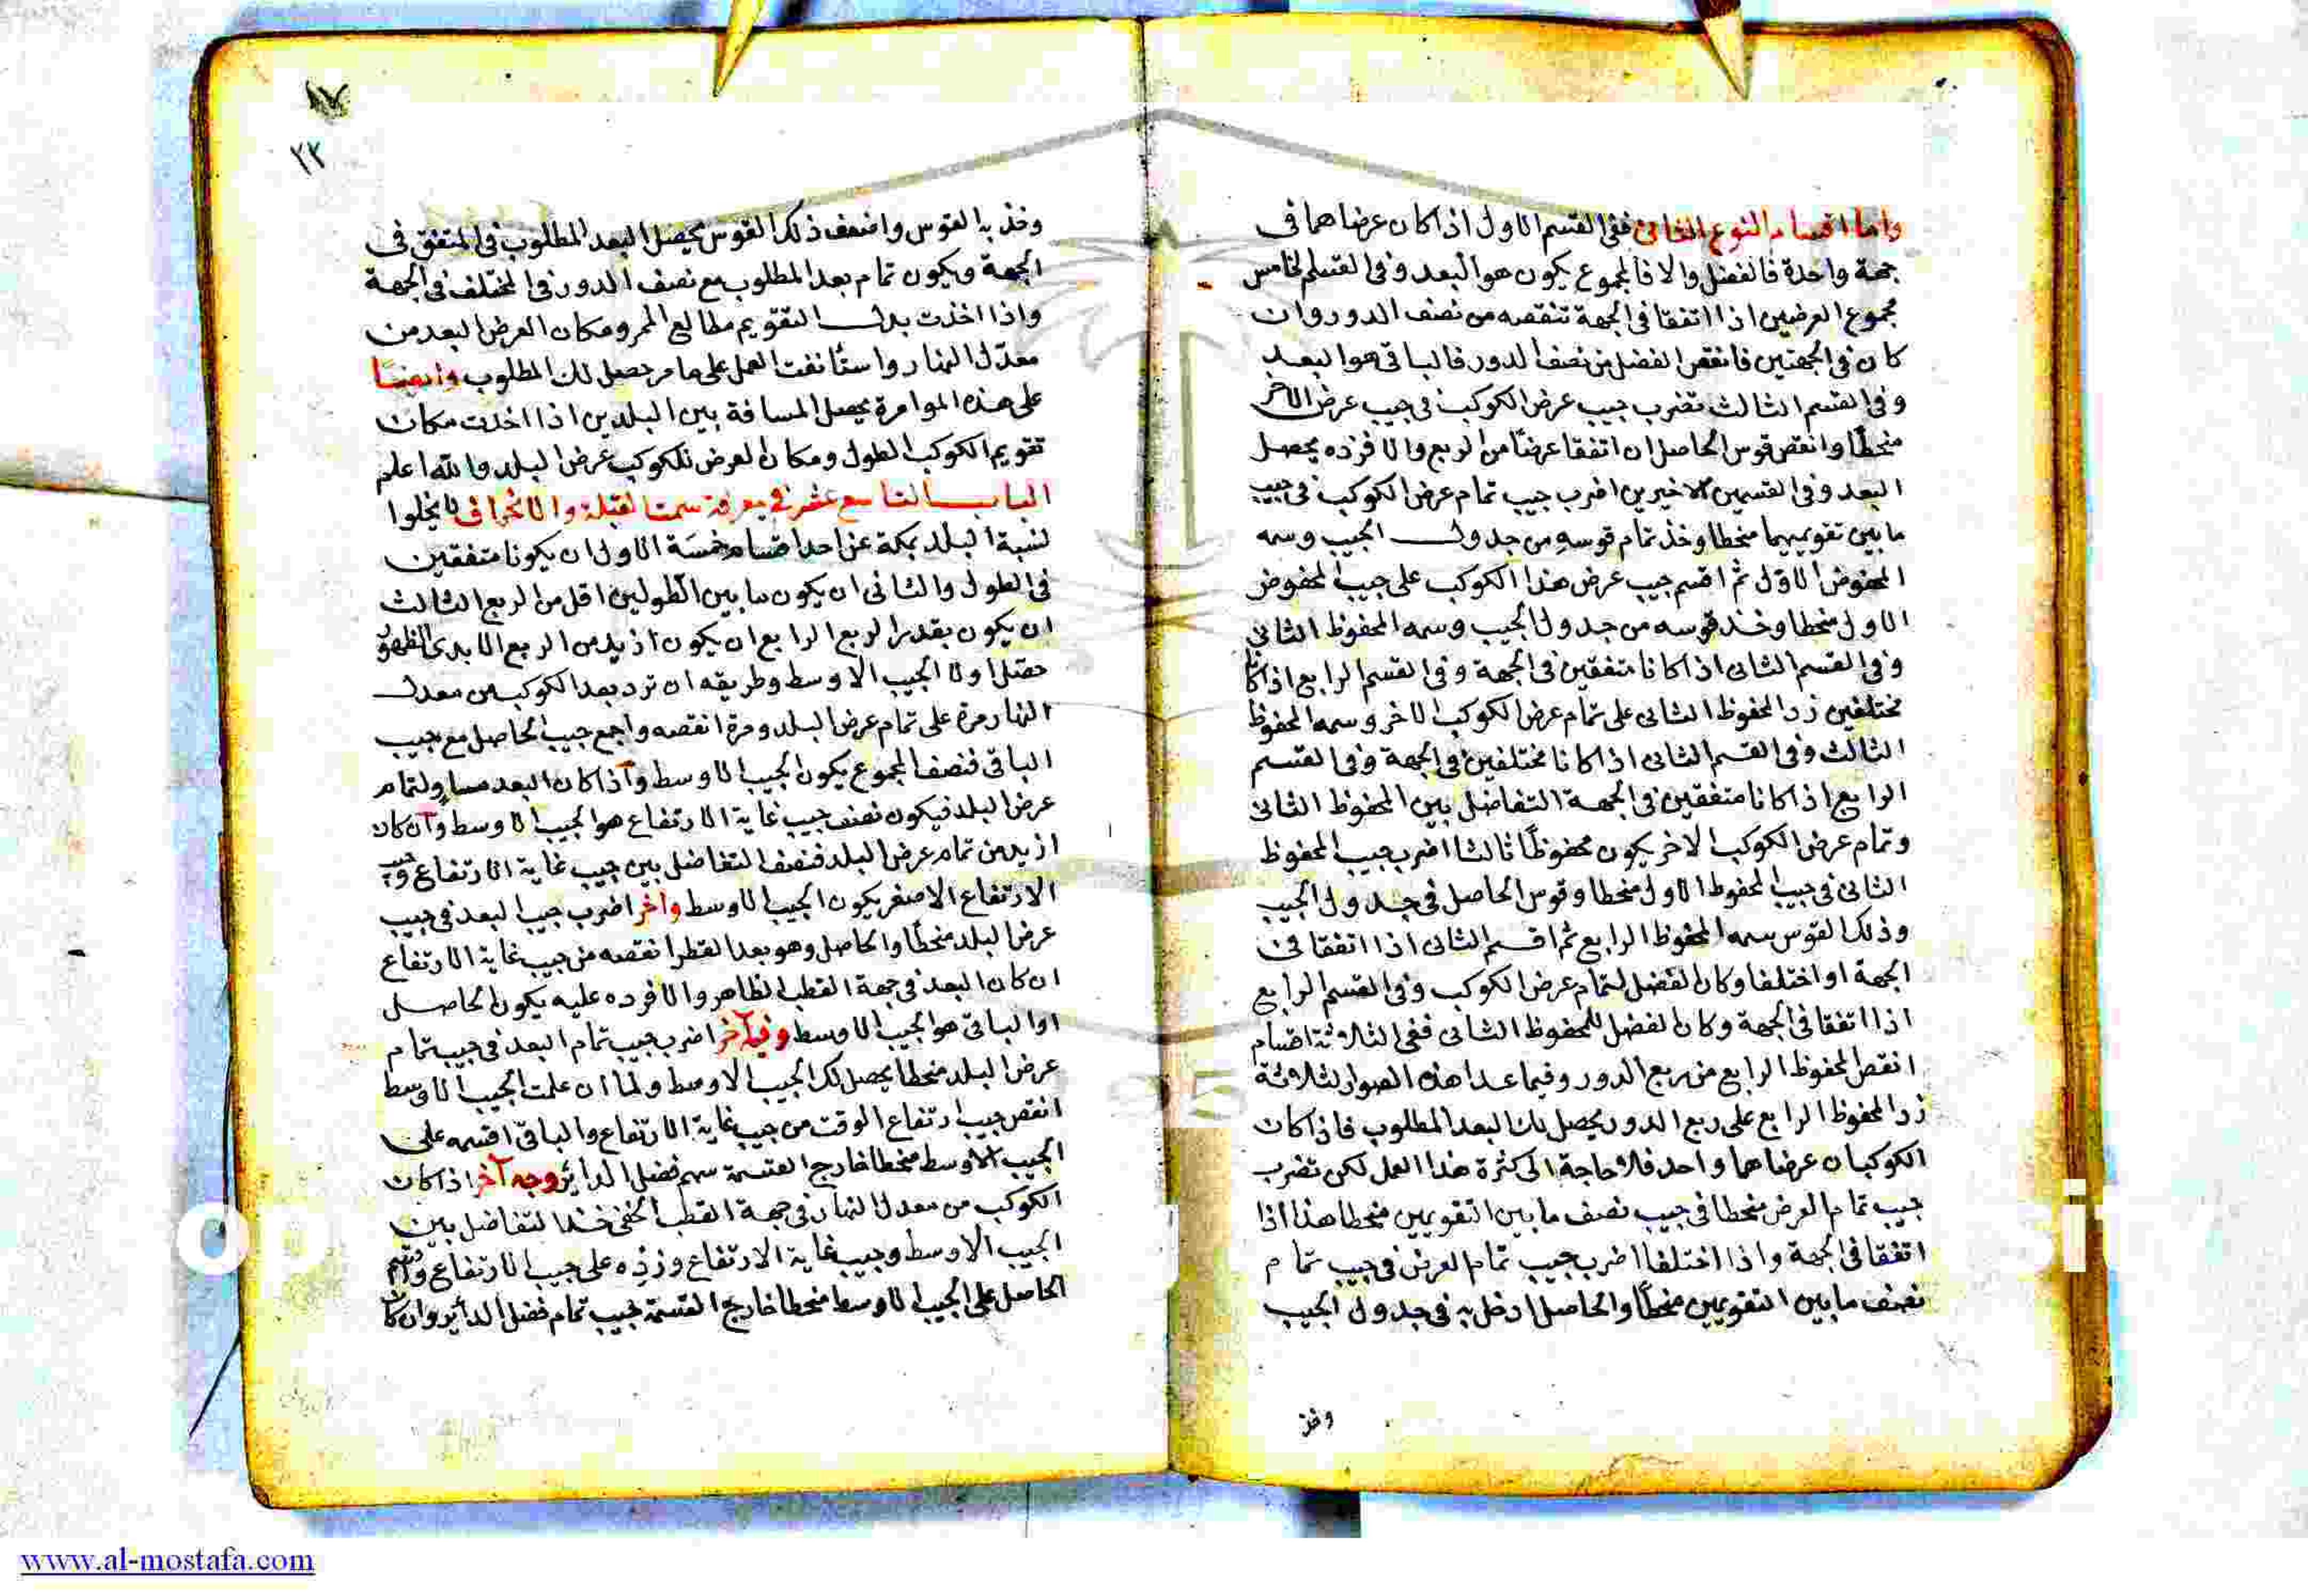 واما اقسام النوع الثانى ففى القسم الاول اذا كان عرضاهما فى
جهة واحدة فالفضل والا فالمجموع يكون هو البعد وفى القسم الخامس
مجموع العرضين اذا اتفقا فى الجهة تنقصه من نصف الدور وان
كان فى الجهتين فانقص الفضل من نصف الدور فالباقى هو البعد
وفى القسم الثالث تضرب جيب عرض الكوكب فى جيب عرض الاخر
منحطا وانقص قوس الحاصل ان اتفقا عرضا من الربع والا فزده يحصل
البعد وفى القسمين الاخيرين اضرب جيب تمام عرض الكوكب فى جيب
ما بين تقويميهما منحطا وخذ تمام قوسه من جدول الجيب وسمه
المحفوض الاول ثم اقسم جيب عرض هذا الكوكب على جيب المحفوض
الاول منحطا وخذ قوسه من جدول الجيب وسمه المحفوظ الثانى
وفى القسم الثانى اذا كانا متفقين فى الجهة وفى القسم الرابع اذا كانا
مختلفين زد المحفوظ الثانى على تمام عرض الكوكب الاخر وسمه المحفوظ
الثالث وفى القسم الثانى اذا كانا مختلفين فى الجهة وفى القسم
الرابع اذا كانا متفقين فى الجهة التفاضل بين المحفوظ الثانى
وتمام عرض الكوكب الاخر يكون محفوظا ثالثا اضرب جيب المحفوظ
الثانى فى جيب المحفوظ الاول منحطا وقوس الحاصل فى جدول الجيب
وذلك القوس سمه المحفوظ الرابع ثم اقسم الثانى اذا اتفقا فى
الجهة او اختلفا وكان الفضل لتمام عرض الكوكب وفى القسم الرابع
اذا اتفقا فى الجهة وكان الفضل للمحفوظ الثانى ففى الثلاثة اقسام
انقص المحفوظ الرابع من ربع الدور وفيما عدا هذه الصور الثلاثة
زد المحفوظ الرابع على ربع الدور يحصل لك البعد المطلوب فاذا كان
الكوكبان عرضاهما واحد فلا حاجة الى كثرة هذا العمل لكن تضرب
جيب تمام العرض منحطا فى جيب نصف ما بين التقويمين منحطا هذا اذا
اتفقا فى الجهة واذا اختلفا اضرب جيب تمام العرض فى جيب تمام
نصف ما بين التقويمين منحطا والحاصل ادخل به فى جدول الجيب
وخذ
٨٧
٢٢
وخذ به القوس واضعف ذلك القوس يحصل البعد المطلوب فى المتفق فى
الجهة ويكون تمام بعد المطلوب مع نصف الدور فى المختلف فى الجهة
واذا اخذت بدل التقويم مطالع الممر ومكان العرض البعد من
معدل النهار واستأنفت العمل على ما مر حصل لك المطلوب وايضا
على هذه الموامرة يحصل المسافة بين البلدين اذا اخذت مكان
تقويم الكوكب الطول ومكان العرض للكوكب عرض البلد والله اعلم
الباب التاسع عشر فى معرفة سمت القبلة والانحراف لا يخلوا
نسبة البلد بمكة عن احد اقسام خمسة الاول ان يكونا متفقين
فى الطول والثانى ان يكون ما بين الطولين اقل من الربع الثالث
ان يكون بقدر الربع الرابع ان يكون ازيد من الربع الابدى الظهور
حصل اولا الجيب الاوسط وطريقه ان تزد بعد الكوكب من معدل
النهار مرة على تمام عرض البلد ومرة انقصه واجمع جيب الحاصل مع جيب
الباقى فنصف المجموع يكون الجيب الاوسط واذا كان البعد مساو لتمام
عرض البلد فيكون نصف جيب غاية الارتفاع هو الجيب الاوسط وان كان
ازيد من تمام عرض البلد فنصف التفاضل بين جيب غاية الارتفاع وجيب
الارتفاع الاصغر يكون الجيب الاوسط وآخر اضرب جيب البعد فى جيب
عرض البلد منحطا والحاصل وهو بعد القطر انقصه من جيب غاية الارتفاع
ان كان البعد فى جهة القطب الظاهر والا فزده عليه يكون الحاصل
او الباقى هو الجيب الاوسط وفيه آخر اضرب جيب تمام البعد فى جيب تمام
عرض البلد منحطا يحصل لك الجيب الاوسط ولما ان علمت الجيب الاوسط
انقص جيب ارتفاع الوقت من جيب غاية الارتفاع والباقى اقسمه على
الجيب الاوسط منحطا خارج القسمة سهم فضل الدائر وجه آخر اذا كان
الكوكب من معدل النهار فى جهة القطب الخفى خذ التفاضل بين
الجيب الاوسط وجيب غاية الارتفاع وزده على جيب الارتفاع واقسم
الحاصل على الجيب الاوسط منحطا خارج القسمة جيب تمام فضل الدائر وان كان
www.al-mostafa.com